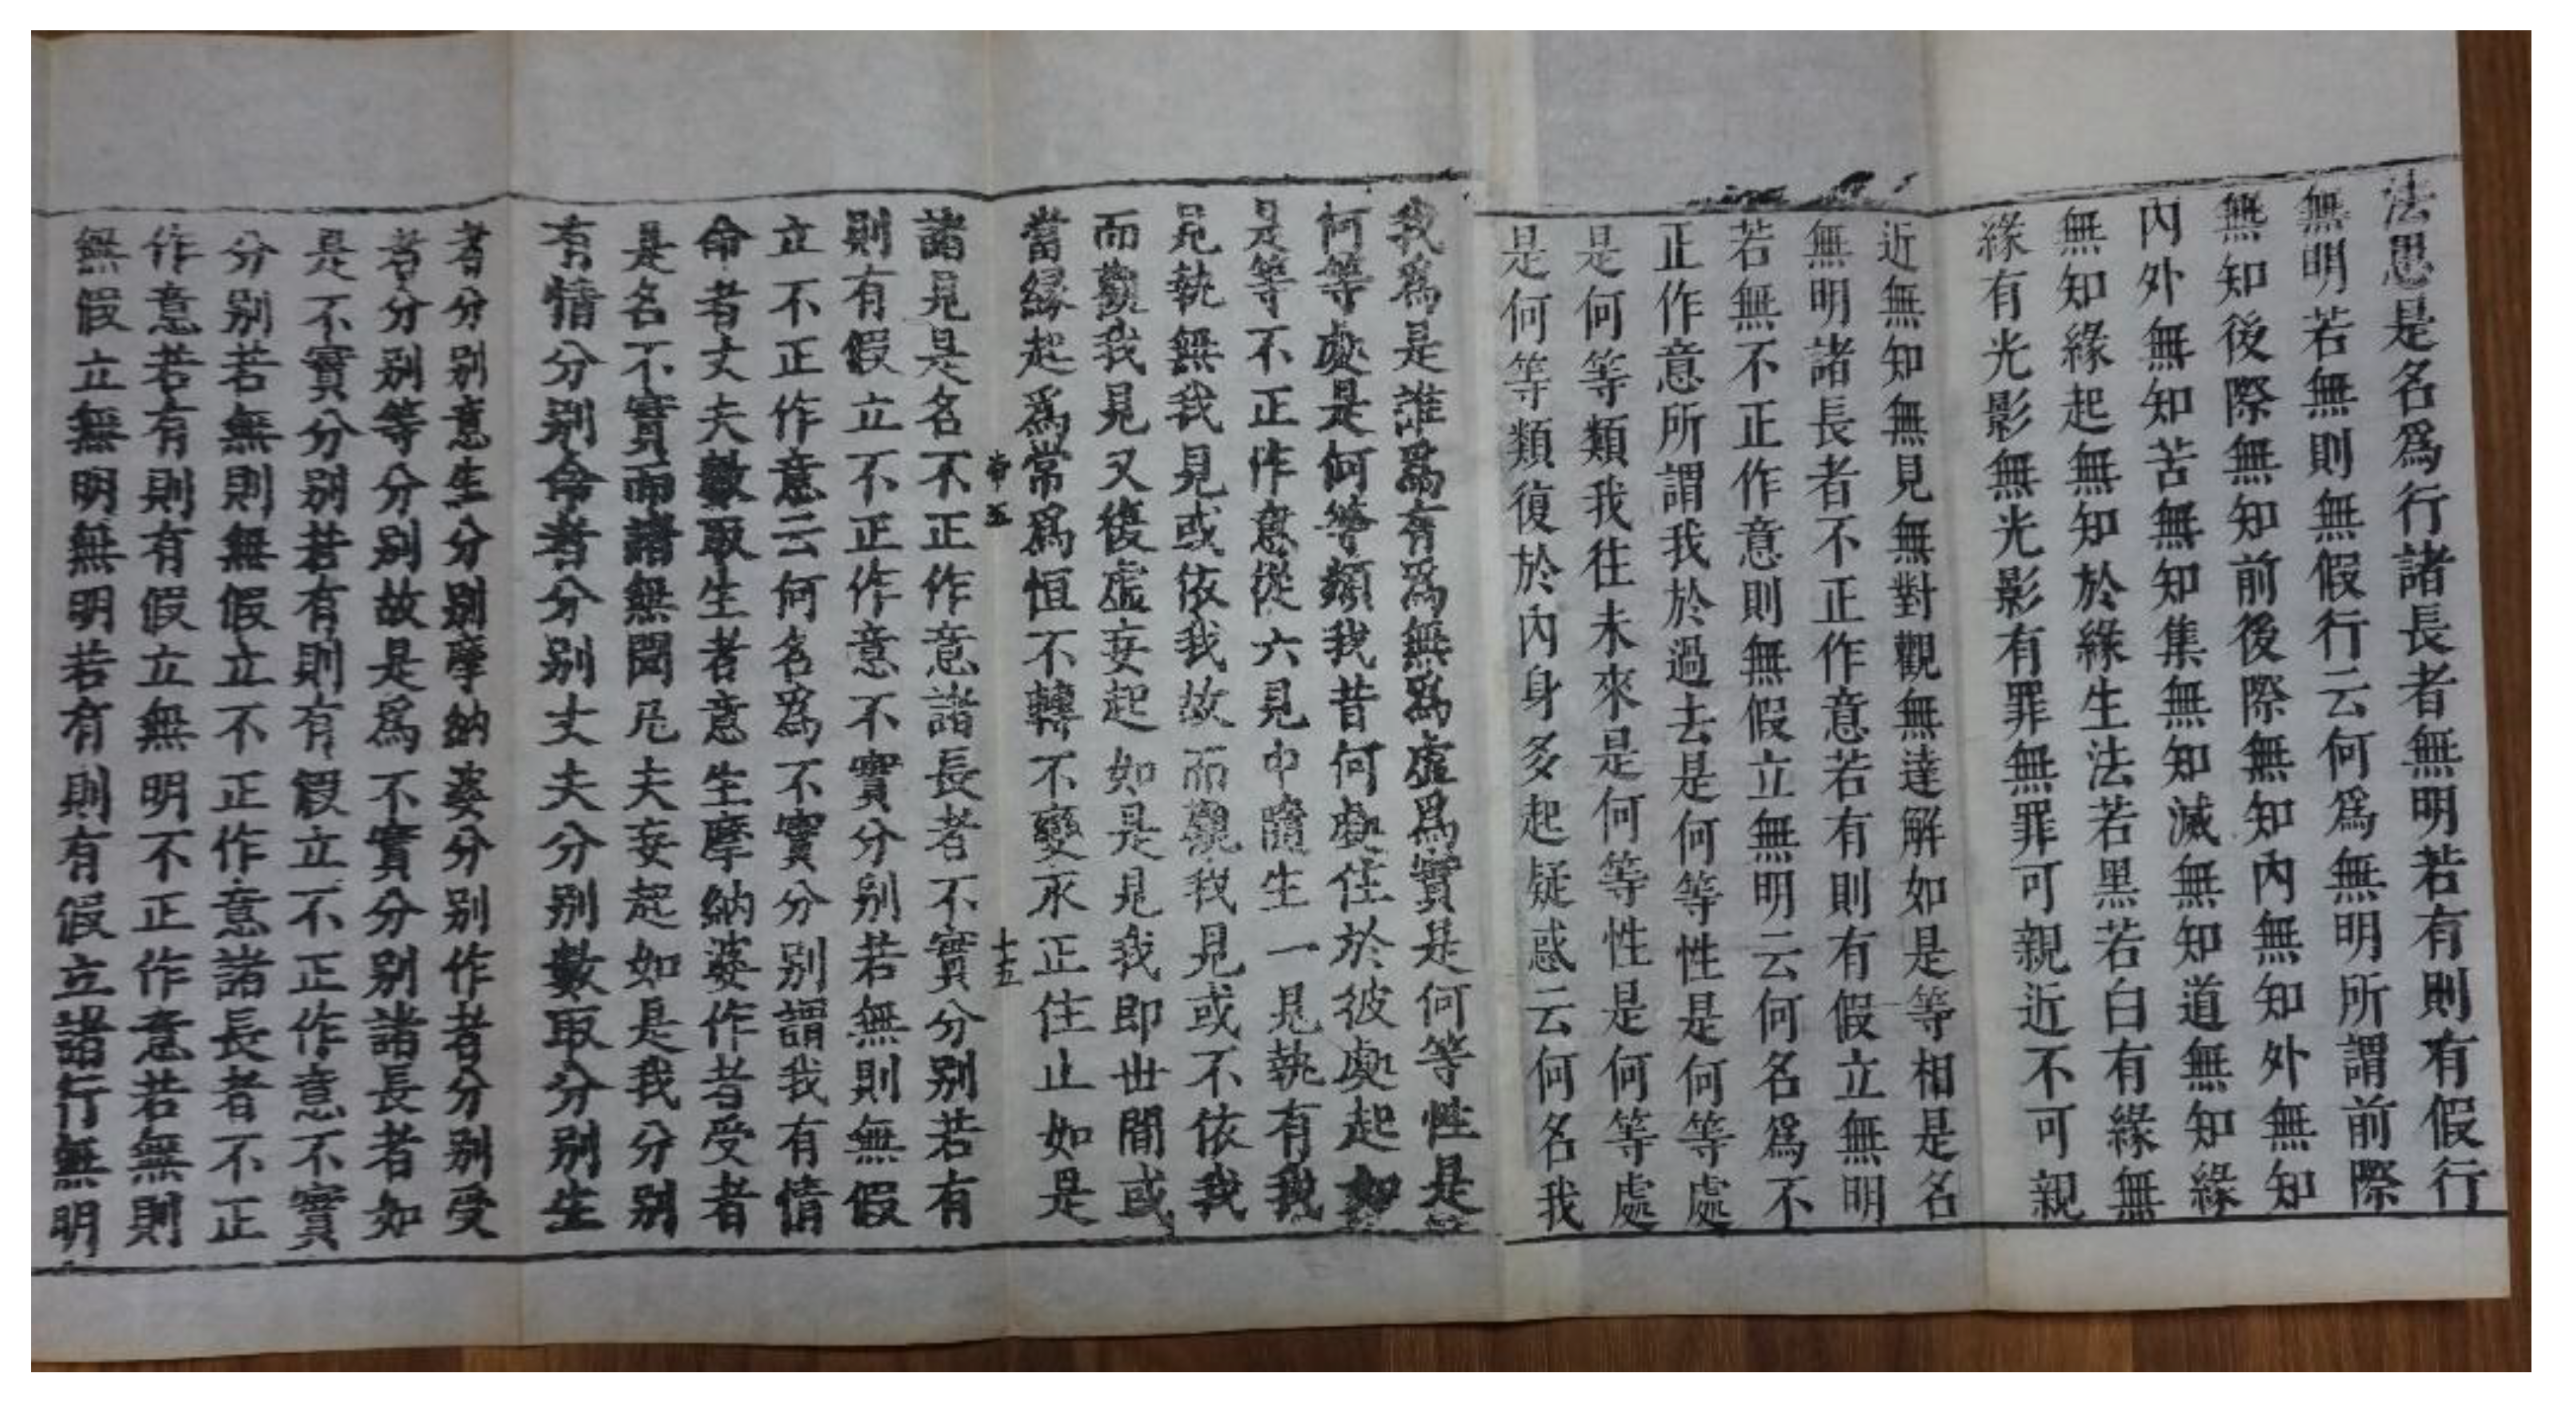 法思是名爲行諸長者無明若有則有假行
無明若無則無假行云何爲無明所謂前際
無知後際無知前後際無知內無知外無知
內外無知苦無知集無知滅無知道無知緣
無知緣起無知於緣生法若黑若白有緣無
緣有光影無光影有罪無罪可親近不可親
近無知無見無對觀無達解如是等相是名
無明諸長者不正作意若有則有假立無明
若無不正作意則無假立無明云何名爲不
正作意所謂我於過去是何等性是何等處
是何等類我往未來是何等性是何等處
是何等類復於內身多起疑惑云何名我
我爲是誰爲有爲無爲虛爲實是何等性是
何等處是何等類我昔何處住於彼處起如
是等不正作意從六見中隨生一見執有我
見執無我見或依我故而觀我見或不依我
而觀我見又復虛妄起如是見我即世間或
當緣起爲常爲恒不轉不變永正住止如是
諸見是名不正作意諸長者不實分別若有
則有假立不正作意不實分別若無則無假
立不正作意云何名爲不實分別謂我有情
命者丈夫數取生者意生摩納婆作者受者
是名不實而諸無聞凡夫妄起如是我分別
有情分別命者分別丈夫分別數取分別生
者分別意生分別摩納婆分別作者分別受
者分別等分別故是爲不實分別諸長者如
是不實分別若有則有假立不正作意不實
分別若無則無假立不正作意諸長者不正
作意若有則有假立無明不正作意若無則
無假立無明無明若有則有假立諸行無明
十五